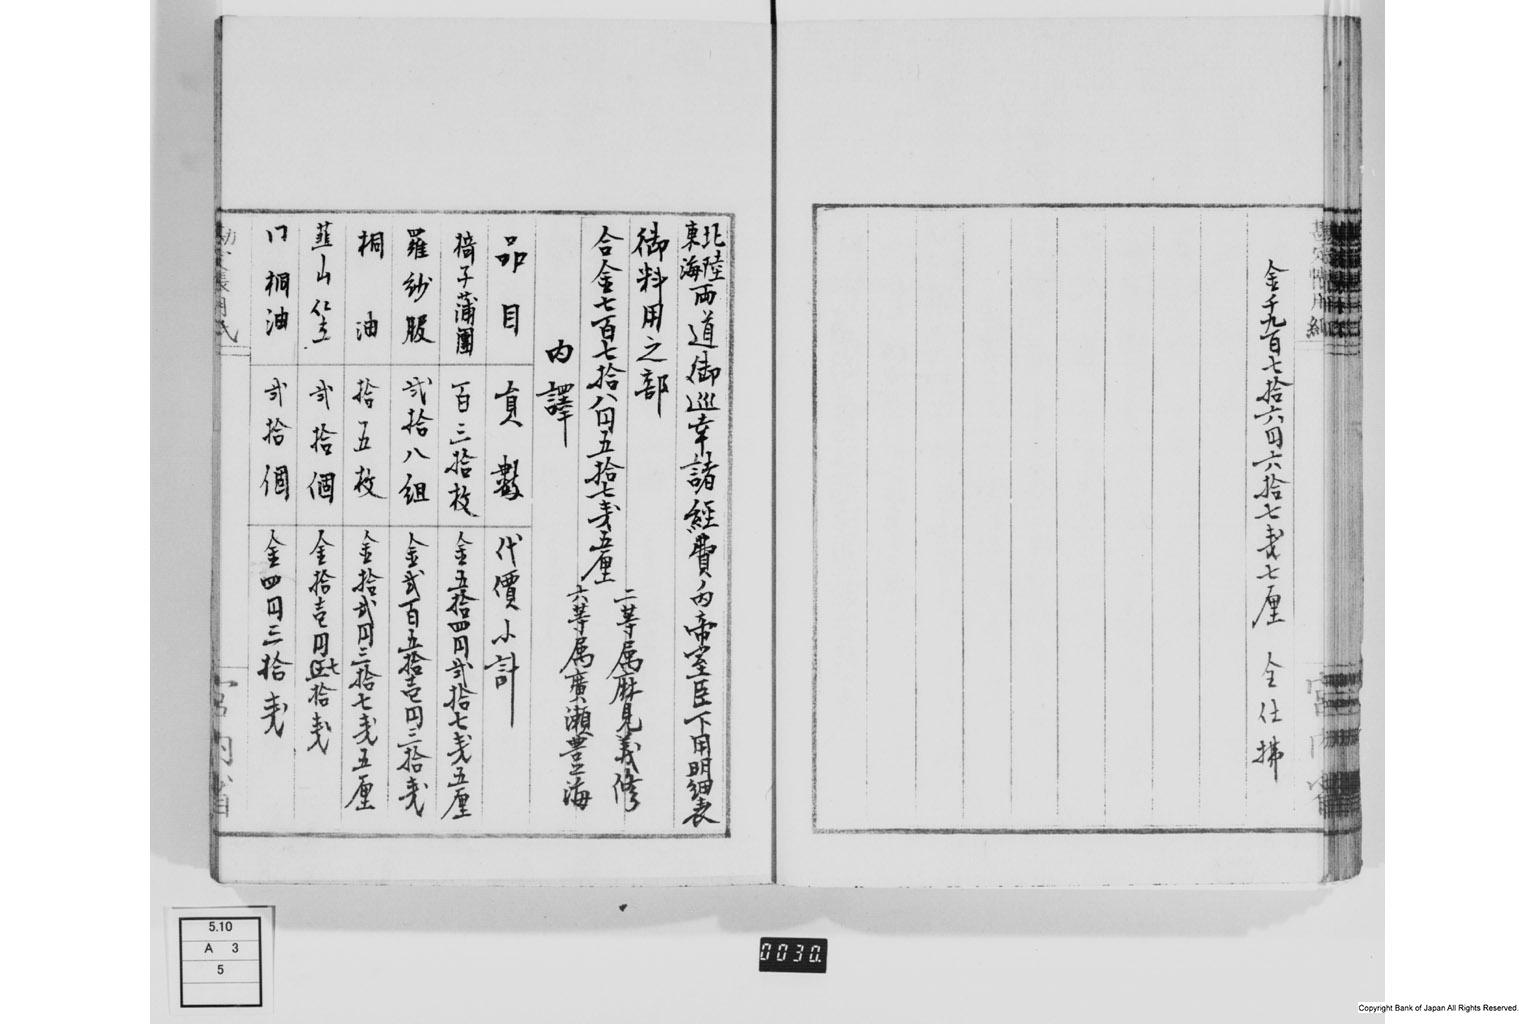 金千九百七拾六円六拾七戔七厘 仝仕拂
北陸
東海 両道御巡幸諸經費ノ内帝室臣下用明細表
御料用之部
合金七百七拾八円五拾七戔五厘
二等属麻見義修
六等属廣瀬豊海
内譯
品目 員數 代價小計
椅子蒲團 百三拾枚 金五拾四円弐拾七戔五厘
羅紗服 弐拾八組 金弐百五拾壱円三拾戔
桐油 拾五枚 金拾弐円三拾七戔五厘
韮山笠 弐拾個 金拾壱円七拾戔
〃桐油 弐拾個 金四円三拾戔
宮内省
5.10
A 3
5
0030.
Copyright Bank of Japan All Rights Reserved.